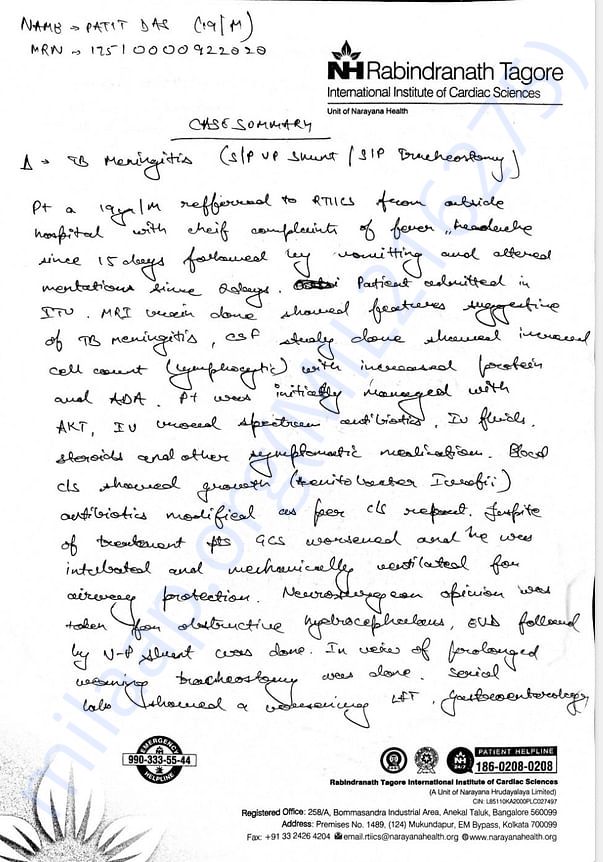 NAME → PATIT DAS (19/M)
MRN → 12510000922020
NH Rabindranath Tagore
International Institute of Cardiac Sciences
Unit of Narayana Health
CASE SOMMARY
Δ → TB Meningitis (S/P VP Shunt / S/P Tracheostomy)
Pt a 19yr/M refferred to RTIICS from outside
hospital with cheif complaints of fever, headache
since 15 days followed by vomitting and altered
mentations since 2days. Patient admitted in
ITU. MRI brain done showed features suggestive
of TB meningitis, CSF study done showed increased
cell count (lymphocytic) with increased protein
and ADA. Pt was initially managed with
AKT, IV broad spectrum antibiotics, IV fluids,
steroids and other symptomatic medication. Blood
c/s showed growth
antibiotics modified as per c/s report. Despite
of treatment pts GCS worsened and he was
intubated and mechanically ventilated for
airway protection. Neurosurgeon opinion was
taken for obstructive hydrocephalus, EVD followed
by V-P shunt was done. In view of prolonged
weaning tracheostomy was done. Serial
labs showed a worsening LFT, gastroenterology
milaap.org/MIL216275)
EMERGENCY
990-333-55-44
HELPLINE
NH
24/7
PATIENT HELPLINE
186-0208-0208
Rabindranath Tagore International Institute of Cardiac Sciences
(A Unit of Narayana Hrudayalaya Limited)
CIN: L85110KA2000PLC027497
Registered Office: 258/A, Bommasandra Industrial Area, Anekal Taluk, Bangalore 560099
Address: Premises No. 1489, (124) Mukundapur, EM Bypass, Kolkata 700099
Fax: +91 33 2426 4204 email.rtiics@narayanahealth.org www.narayanahealth.org